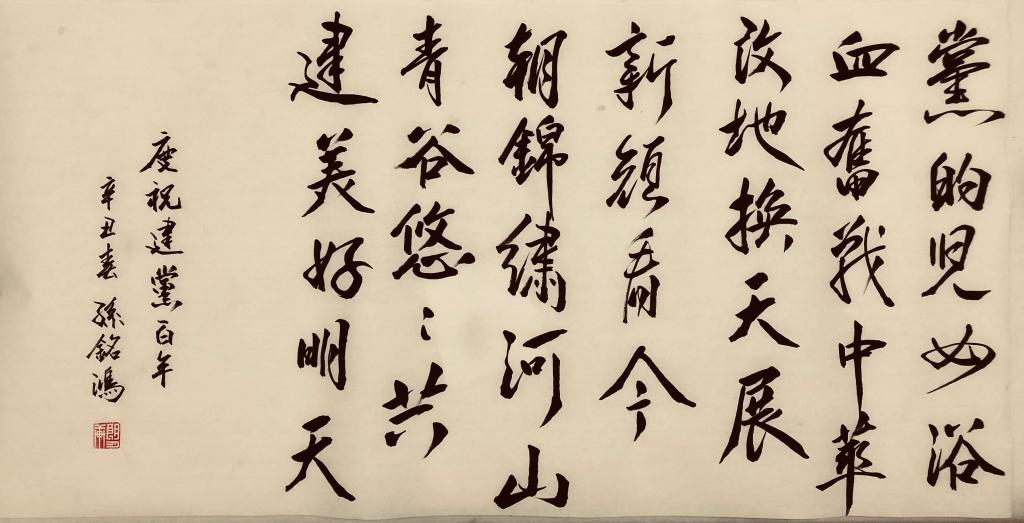 黨的児女浴
血奮戰中華
改地換天展
新顏看今
朝錦繡河山
青谷悠〻共
建美好明天
慶祝建黨百年
辛丑春 孫銘鴻